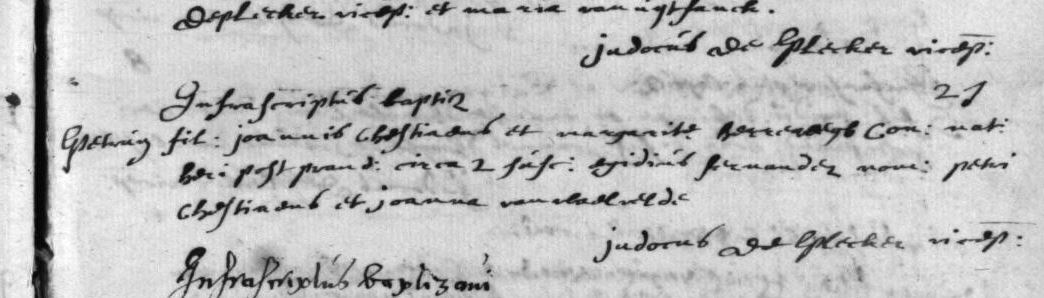 De plecker vicep: et maria van uytfanck.
judocus De Plecker vicep:
21
Infrascriptus baptiz
Petrum fil: joannis Chestiaens et margarite Con: nat:
heri post prand: circa 2 susc: egidius fernandez nom: petri
Chestiaens et joanna van
judocus De Plecker vicep:
Infrascriptus baptizaui